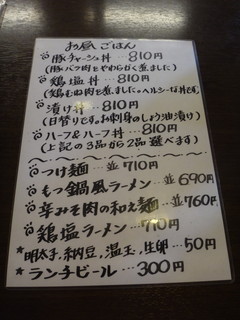 お昼ごはん
豚チャーシュ丼…810円
(豚バラ肉をやわらかく煮ました)
鶏塩丼…810円
(鶏むね肉を煮ました。ヘルシーな丼です)
漬け丼…810円
(日替りです。お刺身のしょう油漬け)
ハーフ&ハーフ丼…810円
(上記の3品から2品 選べます)
つけ麺…並710円
もつ鍋風ラーメン…並690円
辛みそ肉の和え麺…並760円
鶏塩ラーメン…710円
★明太子、納豆、温玉、生卵…50円
★ランチビール…300円